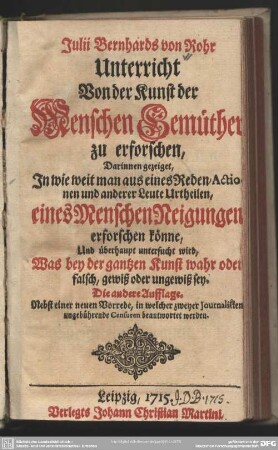 Julii Bernhards von Rohr
Unterricht
Von der Kunst der
Menschen Gemüther
zu erforschen,
Darinnen gezeiget,
In wie weit man aus eines Reden/Actio-
nen und anderer Leute Urtheilen,
eines Menschen Neigungen
erforschen könne,
Und überhaupt untersucht wird,
Was bey der gantzen Kunst wahr oder
falsch, gewiß oder ungewiß sey.
Die andere Aufflage.
Nebst einer neuen Vorrede, in welcher zweyer Journalisten
ungebührende Censuren beantwortet werden.
Leipzig, 1715. J.D.B. 1715.
Verlegts Johann Christian Martini.